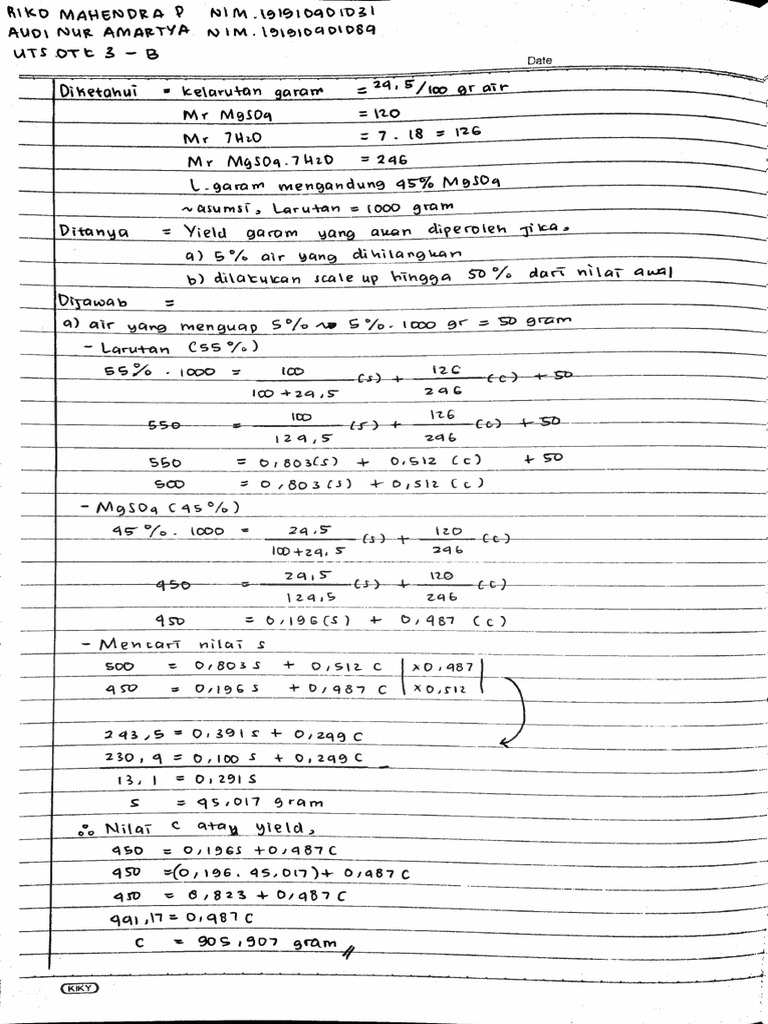 RIKO MAHENDRA P NIM. 191910401031
AUDI NUR AMARTYA NIM. 191910401089
UTS OTK 3 - B
Date
Diketahui = kelarutan garam = 24,5/100 gr air
Mr MgSO4 = 120
Mr 7H2O = 7 . 18 = 126
Mr MgSO4.7H2O = 246
L.garam mengandung 45% MgSO4
~asumsi, Larutan = 1000 gram
Ditanya = Yield garam yang akan diperoleh jika,
a) 5% air yang dihilangkan
b) dilakukan scale up hingga 50% dari nilai awal
Dijawab =
a) air yang menguap 5% ~ 5%.1000 gr = 50 gram
- Larutan (55%)
55% . 1000 = 100/100+24,5 (s) + 126/246 (c) + 50
550 = 100/124,5 (s) + 126/246 (c) + 50
550 = 0,803(s) + 0,512 (c) + 50
500 = 0,803(s) + 0,512 (c)
- MgSO4 (45%)
45%. 1000 = 24,5/100+24,5 (s) + 120/246 (c)
450 = 24,5/124,5 (s) + 120/246 (c)
450 = 0,196(s) + 0,487 (c)
- Mencari nilai s
500 = 0,803 s + 0,512 c | x0,487 |
450 = 0,196 s + 0,487 c | x0,512 |
243,5 = 0,391 s + 0,249 c
230,4 = 0,100 s + 0,249 c
13,1 = 0,291 s
s = 45,017 gram
∴ Nilai c atay yield,
450 = 0,196s + 0,487 c
450 =(0,196.45,017)+ 0,487 c
450 = 8,823 + 0,487 c
441,17 = 0,487 c
c = 905,907 gram //
KIKY